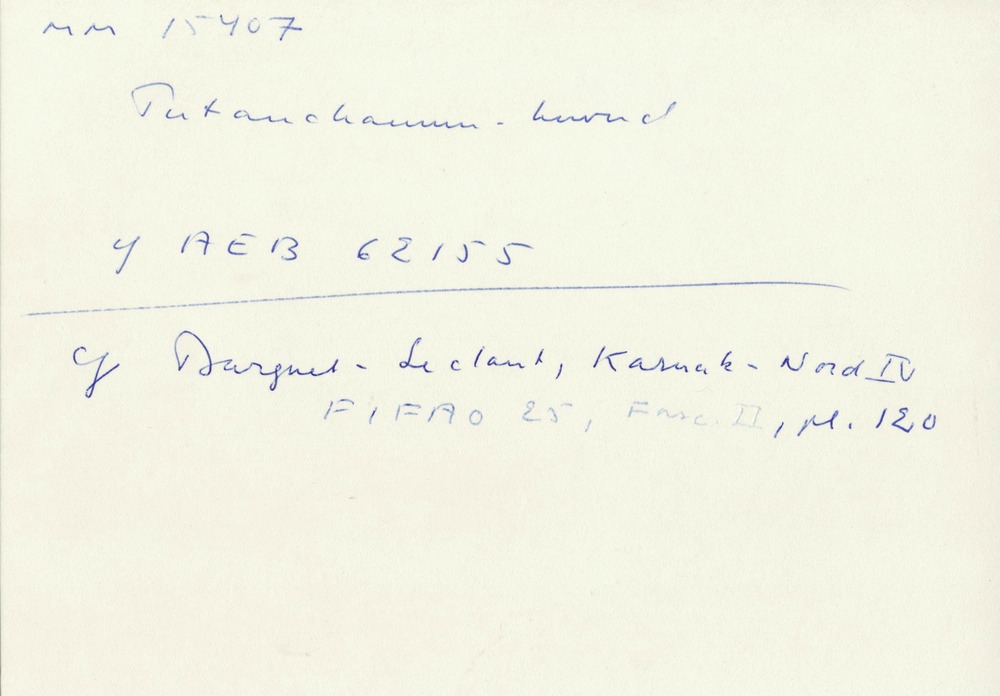 MM 15407
Tutanchamun-huvud
cf AEB 62155
cf Barguet-Leclant, Karnak-Nord IV
FIFAO 25, Fasc. II, pl. 120